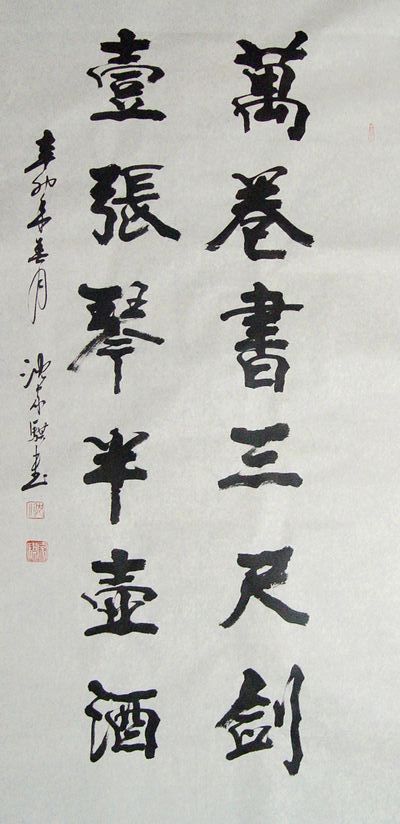 萬卷書三尺劍
壹張琴半壺酒
辛卯年春月 沈家騏書